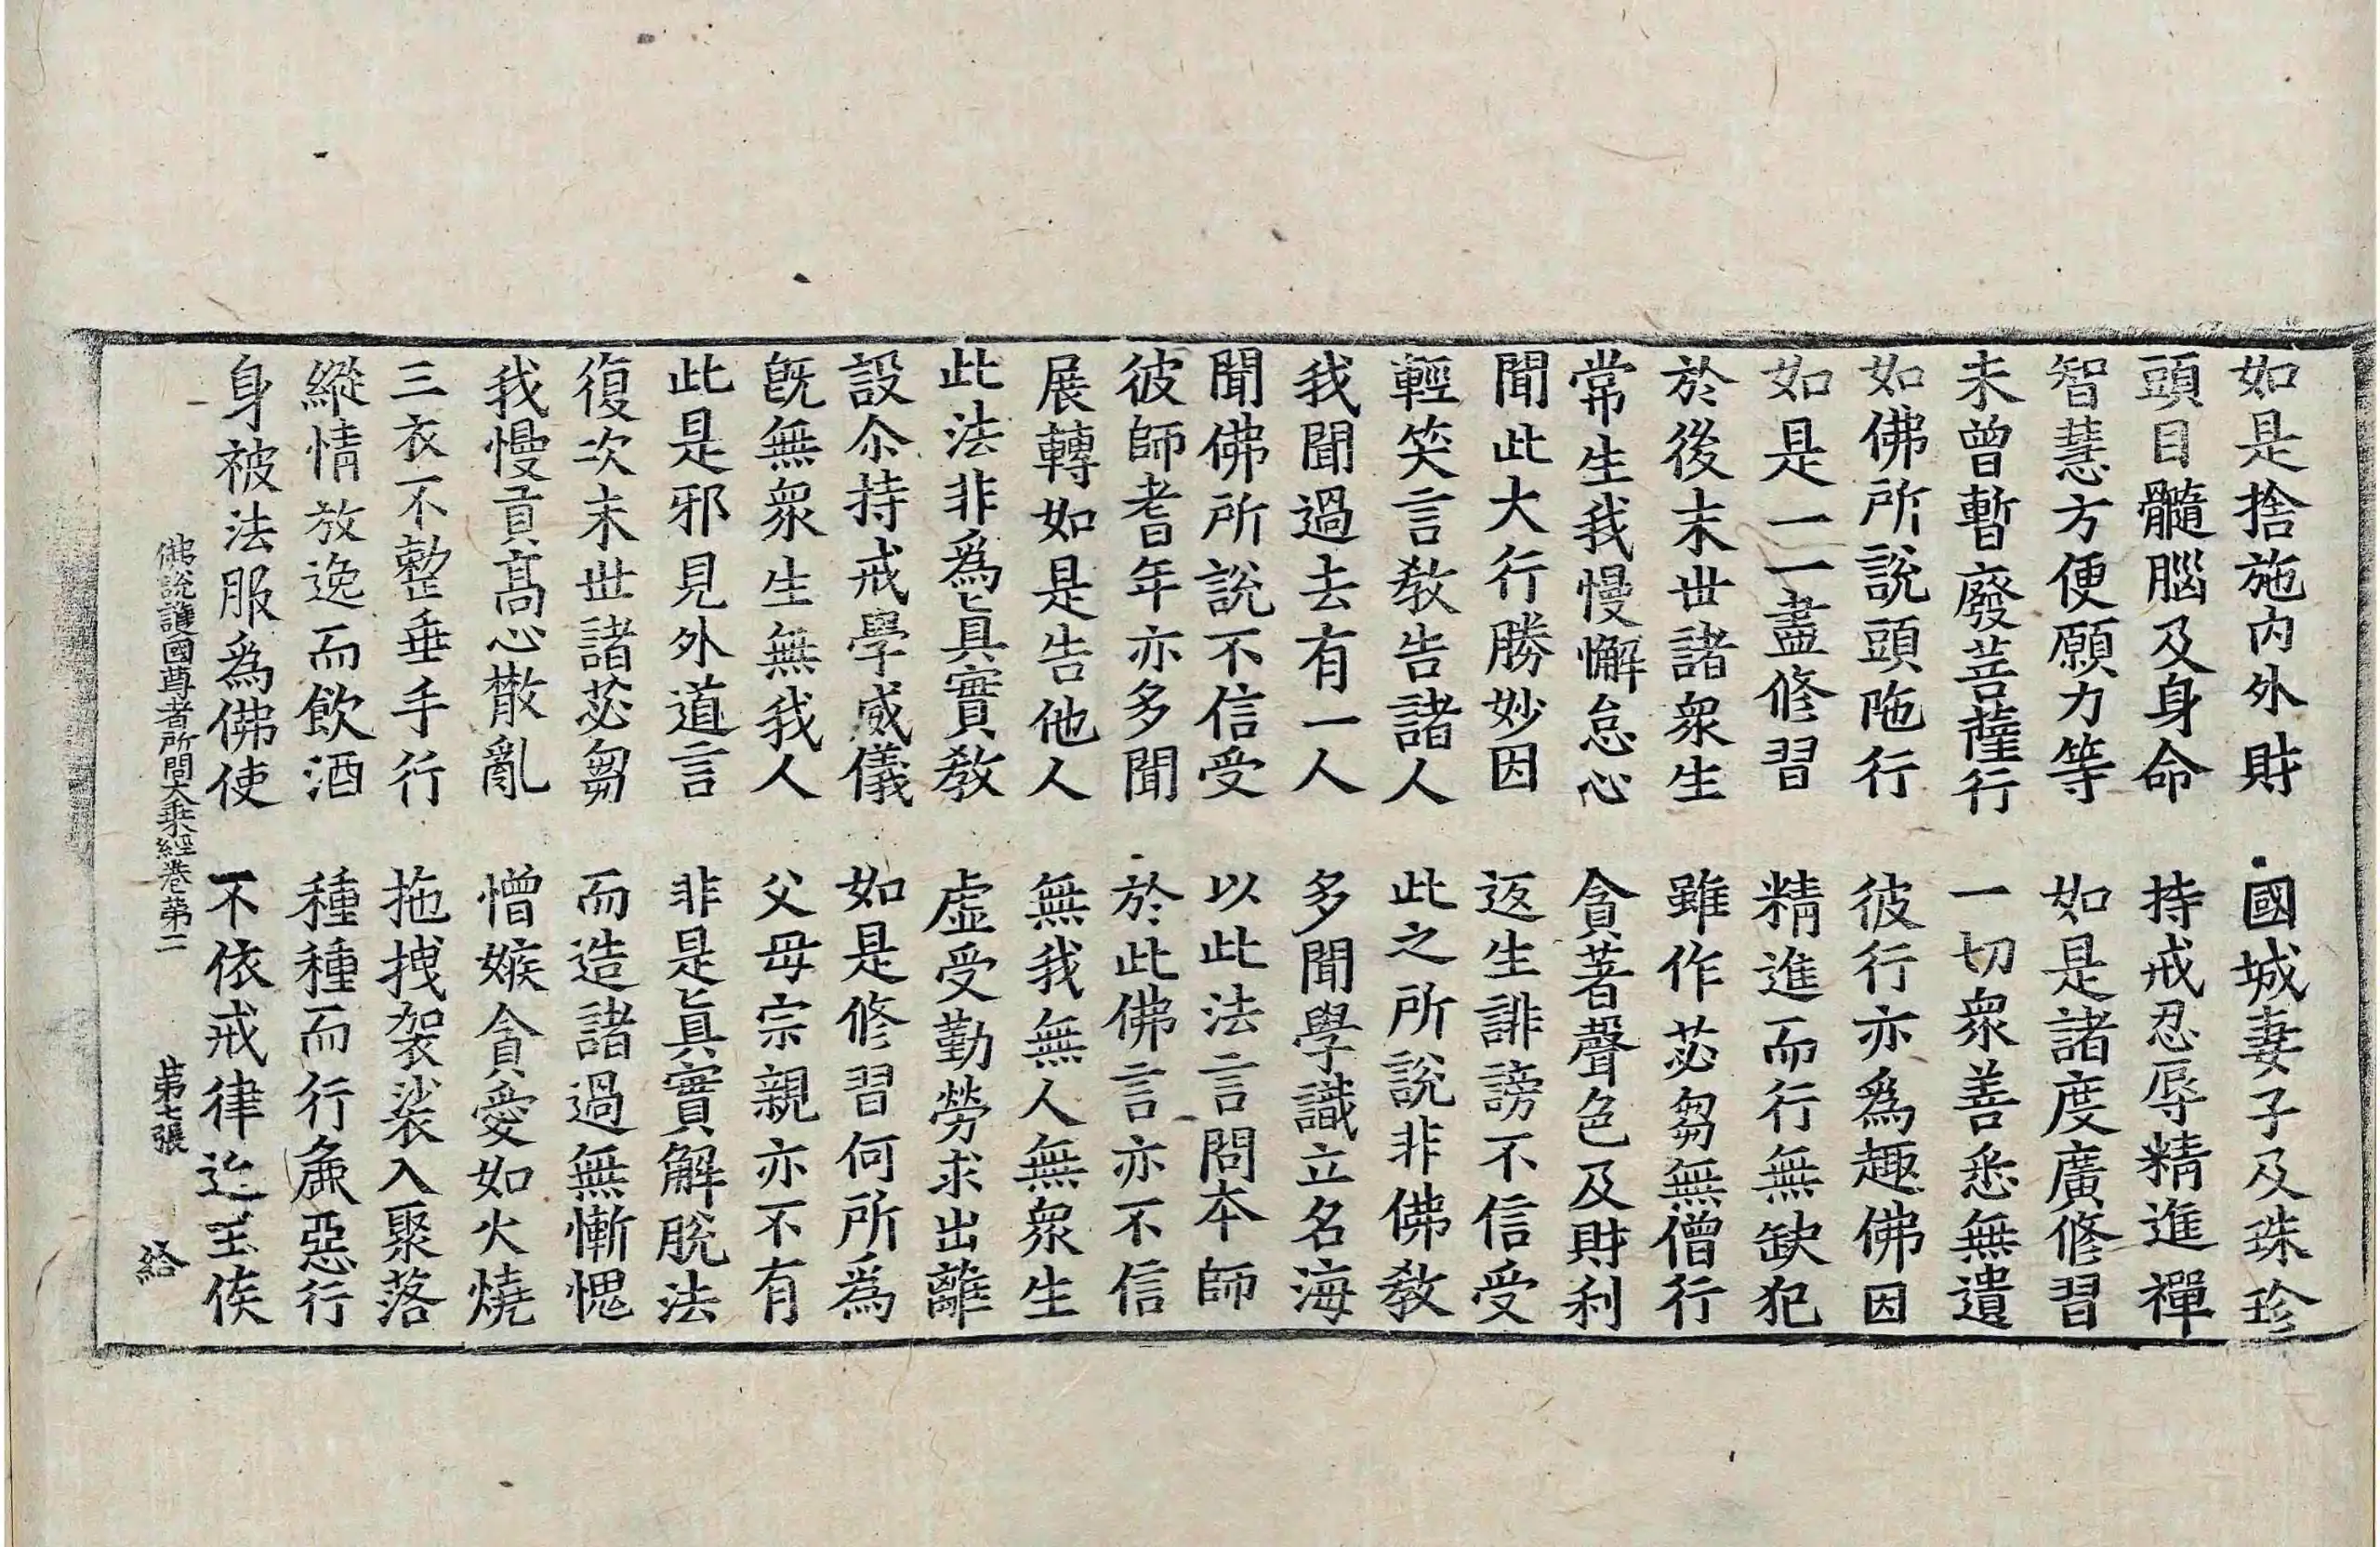 如是捨施內外財　國城妻子及珠珍
頭目髓腦及身命　持戒忍辱精進禪
智慧方便願力等　如是諸度廣修習
未曾暫廢菩薩行　一切衆善悉無遺
如佛所說頭陁行　彼行亦爲趣佛因
如是一一盡修習　精進而行無缺犯
於後末世諸衆生　雖作苾芻無僧行
常生我慢懈怠心　貪著聲色及財利
聞此大行勝妙因　返生誹謗不信受
輕笑言教告諸人　此之所說非佛教
我聞過去有一人　多聞學識立名海
聞佛所說不信受　以此法言問本師
彼師耆年亦多聞　於此佛言亦不信
展轉如是告他人　無我無人無衆生
此法非爲眞實教　虛受勤勞求出離
設尒持戒學威儀　如是修習何所爲
旣無衆生無我人　父母宗親亦不有
此是邪見外道言　非是眞實解脫法
復次末世諸苾芻　而造諸過無慚愧
我慢貢高心散亂　憎嫉貪愛如火燒
三衣不整垂手行　拖拽袈裟入聚落
縱情放逸而飮酒　種種而行麁惡行
身被法服爲佛使　不依戒律近王侯
佛說護國尊者所問大乘經卷第二　第七張　給